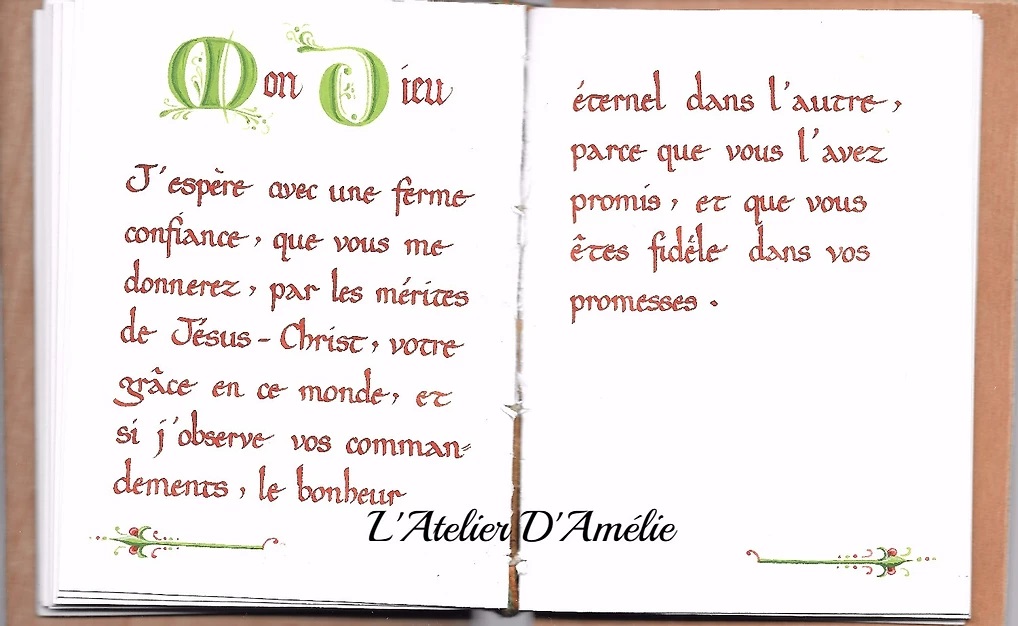 Mon Dieu
J'espère avec une ferme
confiance, que vous me
donnerez, par les mérites
de Jésus-Christ, votre
grâce en ce monde, et
si j'observe vos comman=
dements, le bonheur
éternel dans l'autre,
parce que vous l'avez
promis, et que vous
êtes fidèle dans vos
promesses.
L'Atelier D'Amélie